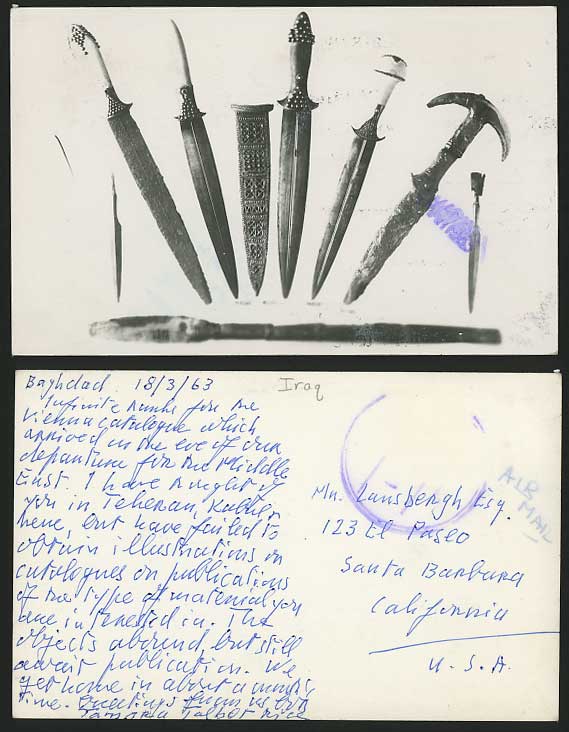 Baghdad 18/3/63
Infinite thanks for the
Vienna catalogue which
arrived on the eve of our
departure for the Middle
East. I have thought of
you in Teheran, Kabul,
here, but have failed to
obtain illustrations or
catalogues or publications
of the type of material you
are interested in. The
objects abound, but still
await publication. We
get home in about a month's
time. Greetings from us both
Tamara Talbot Rice
Iraq
AIR
MAIL
Mr. Lansbergh Esq.
123 El Paseo
Santa Barbara
California
U.S.A.